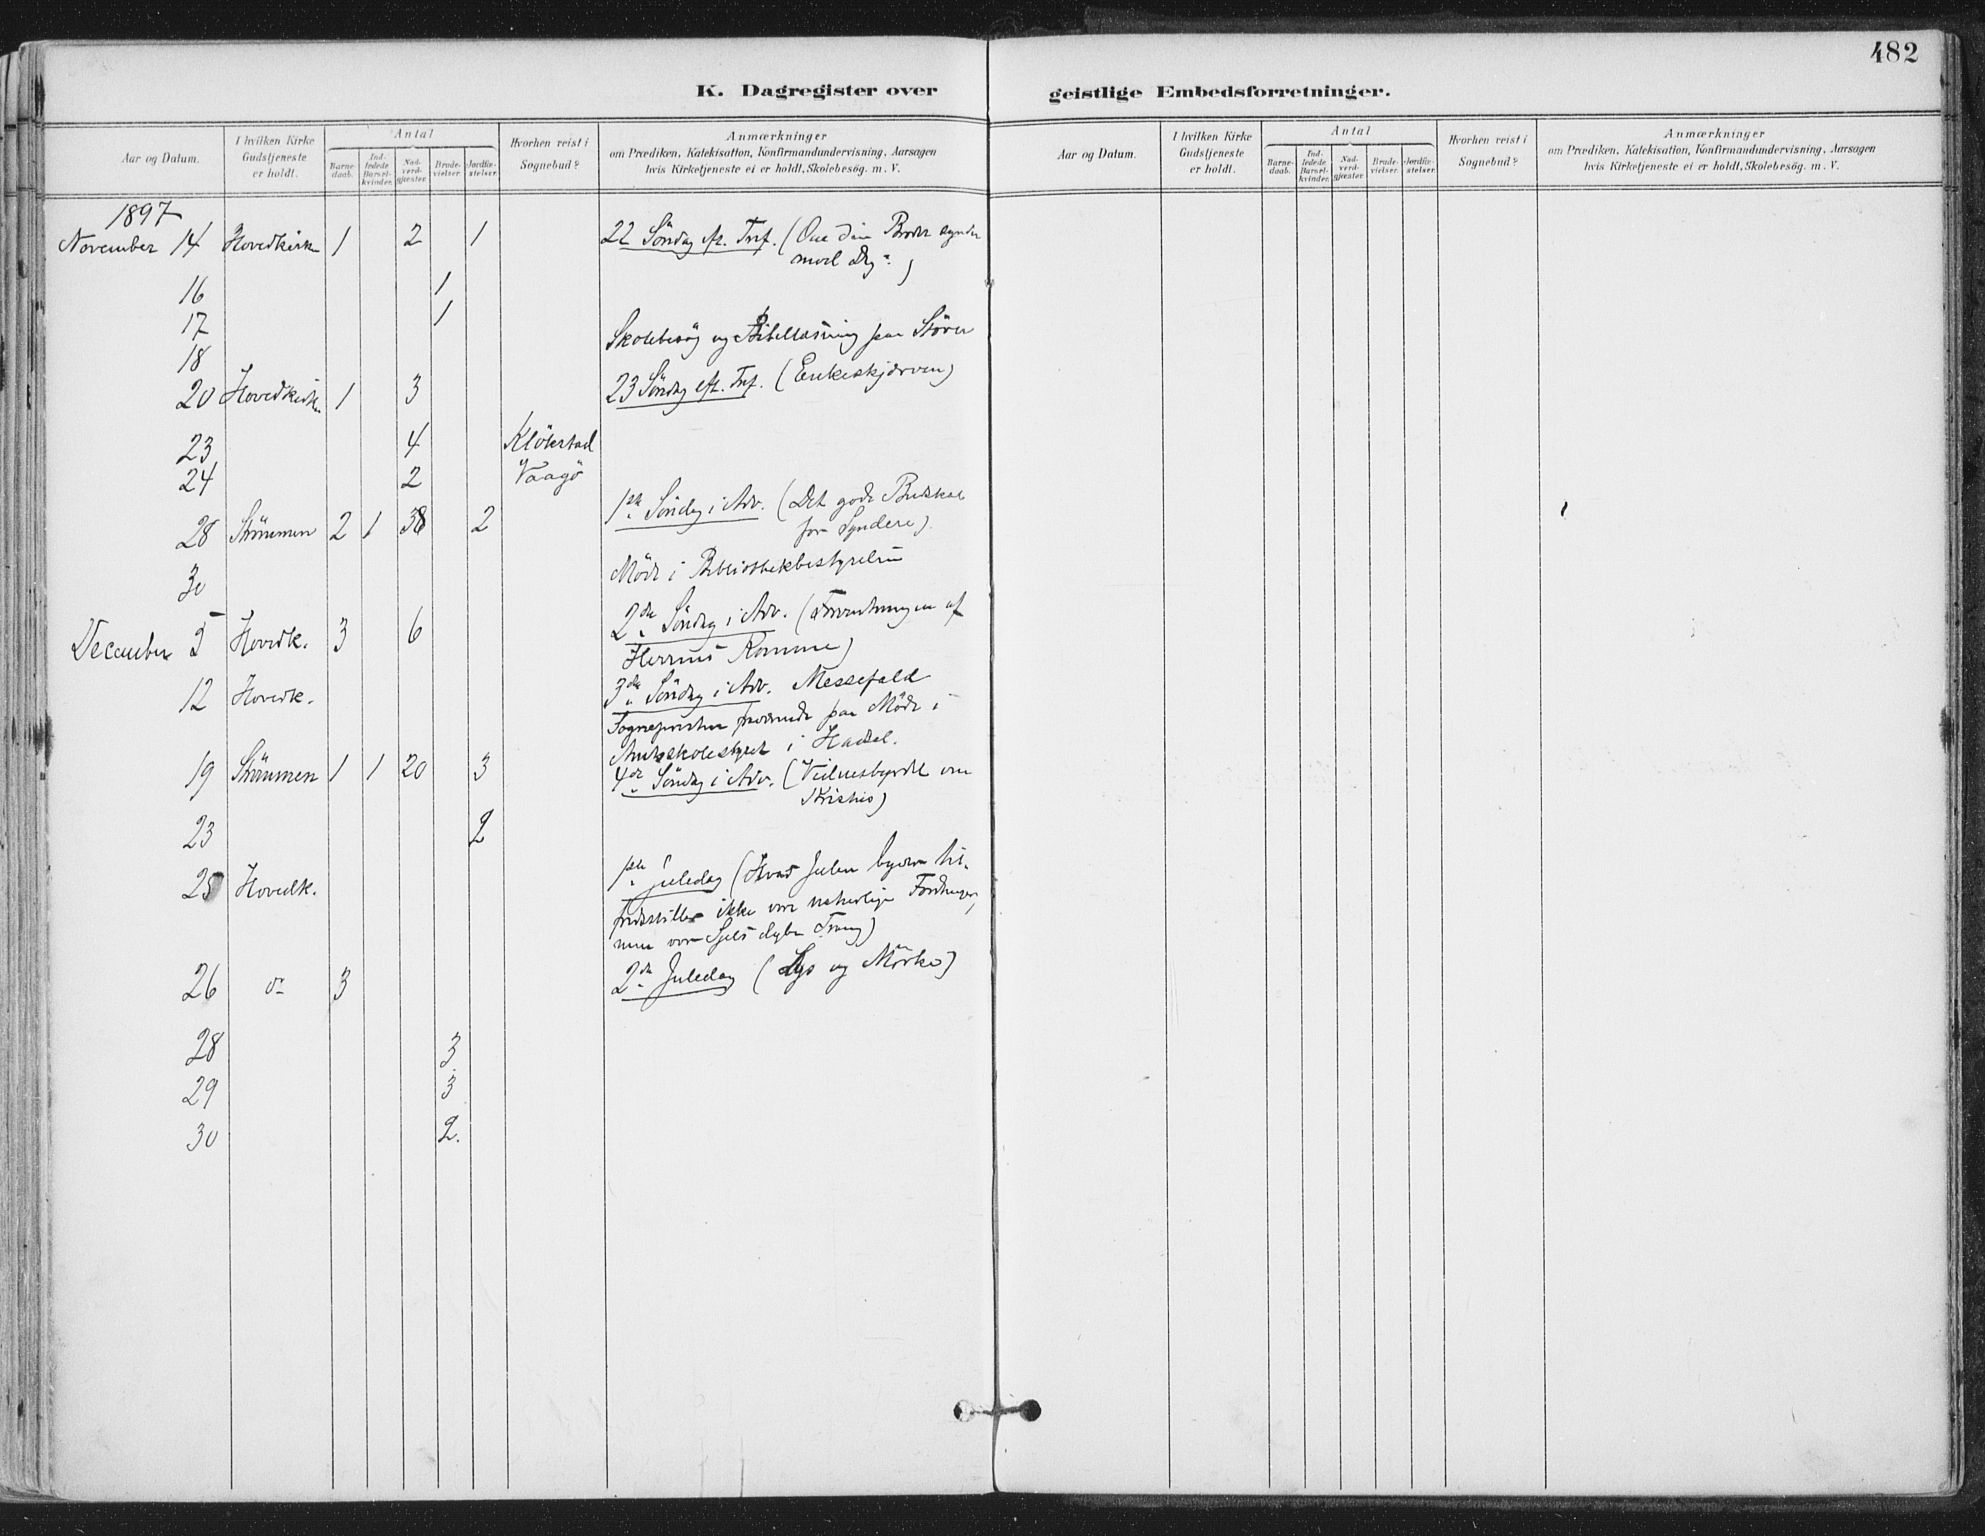 482
K. Dagregister over geistlige Embedsforretninger.
Aar og Datum.
I hvilken Kirke Gudstjeneste er holdt.
Antal
Barnedaab.
Indledede Barselkvinder.
Nadverdgjæster.
Brudevielser.
Jordfæstelser.
Hvorhen reist i Sognebud?
Anmærkninger
om Prædiken, Katekisation, Konfirmandundervisning, Aarsagen
hvis Kirketjeneste ei er holdt, Skolebesøg. m. V.
Aar og Datum.
I hvilken Kirke Gudstjeneste er holdt.
Antal
Barnedaab.
Indledede Barselkvinder.
Nadverdgjæster
Brudevielser.
Jordfæstelser.
Hvorhen reist i Sognebud?
Anmærkninger
om Prædiken, Katekisation, Konfirmandundervisning, Aarsagen
hvis Kirketjeneste ei er holdt, Skolebesög. m. V.
1897
November 14 Hovedkirk 1 2 1 22 Söndag eft. Tref. ( din Broder synder
mod Dig")
16 1
17 1
18 Skolebesög og Bibellæsning paa Stören
20 Hovedkirk. 1 3 23 Söndag eft. Tref. (Enkeskjærven)
23 4 Klökstad
24 2 Vaagö
28 Strömmen 2 1 38 2 1ste Söndag i Adv. (Det gode Budskab
for Syndere).
30 Möde i Bibliothekbestyrelsen
December 5 Hovedk. 3 6 2den Söndag i Adv. (Forventningen af
Herrens Komme)
12 Hovedk. 3de Söndag i Adv. Messefald
Sognepresten fraværende paa Möde i
Amtsskolestyret i Hadsel.
19 Strömmen 1 1 20 3 4de Söndag i Adv. (Vidnesbyrdet om
Kristus)
23 2
25 Hovedk. 1ste Juledag (Hvad Julen byder til-
fredsstiller ikke vore naturlige Fordringer,
men vor Sjæls dybe Trang)
26 do 3 2den Juledag (Lys og Mörke)
28 3
29 3
30 2.